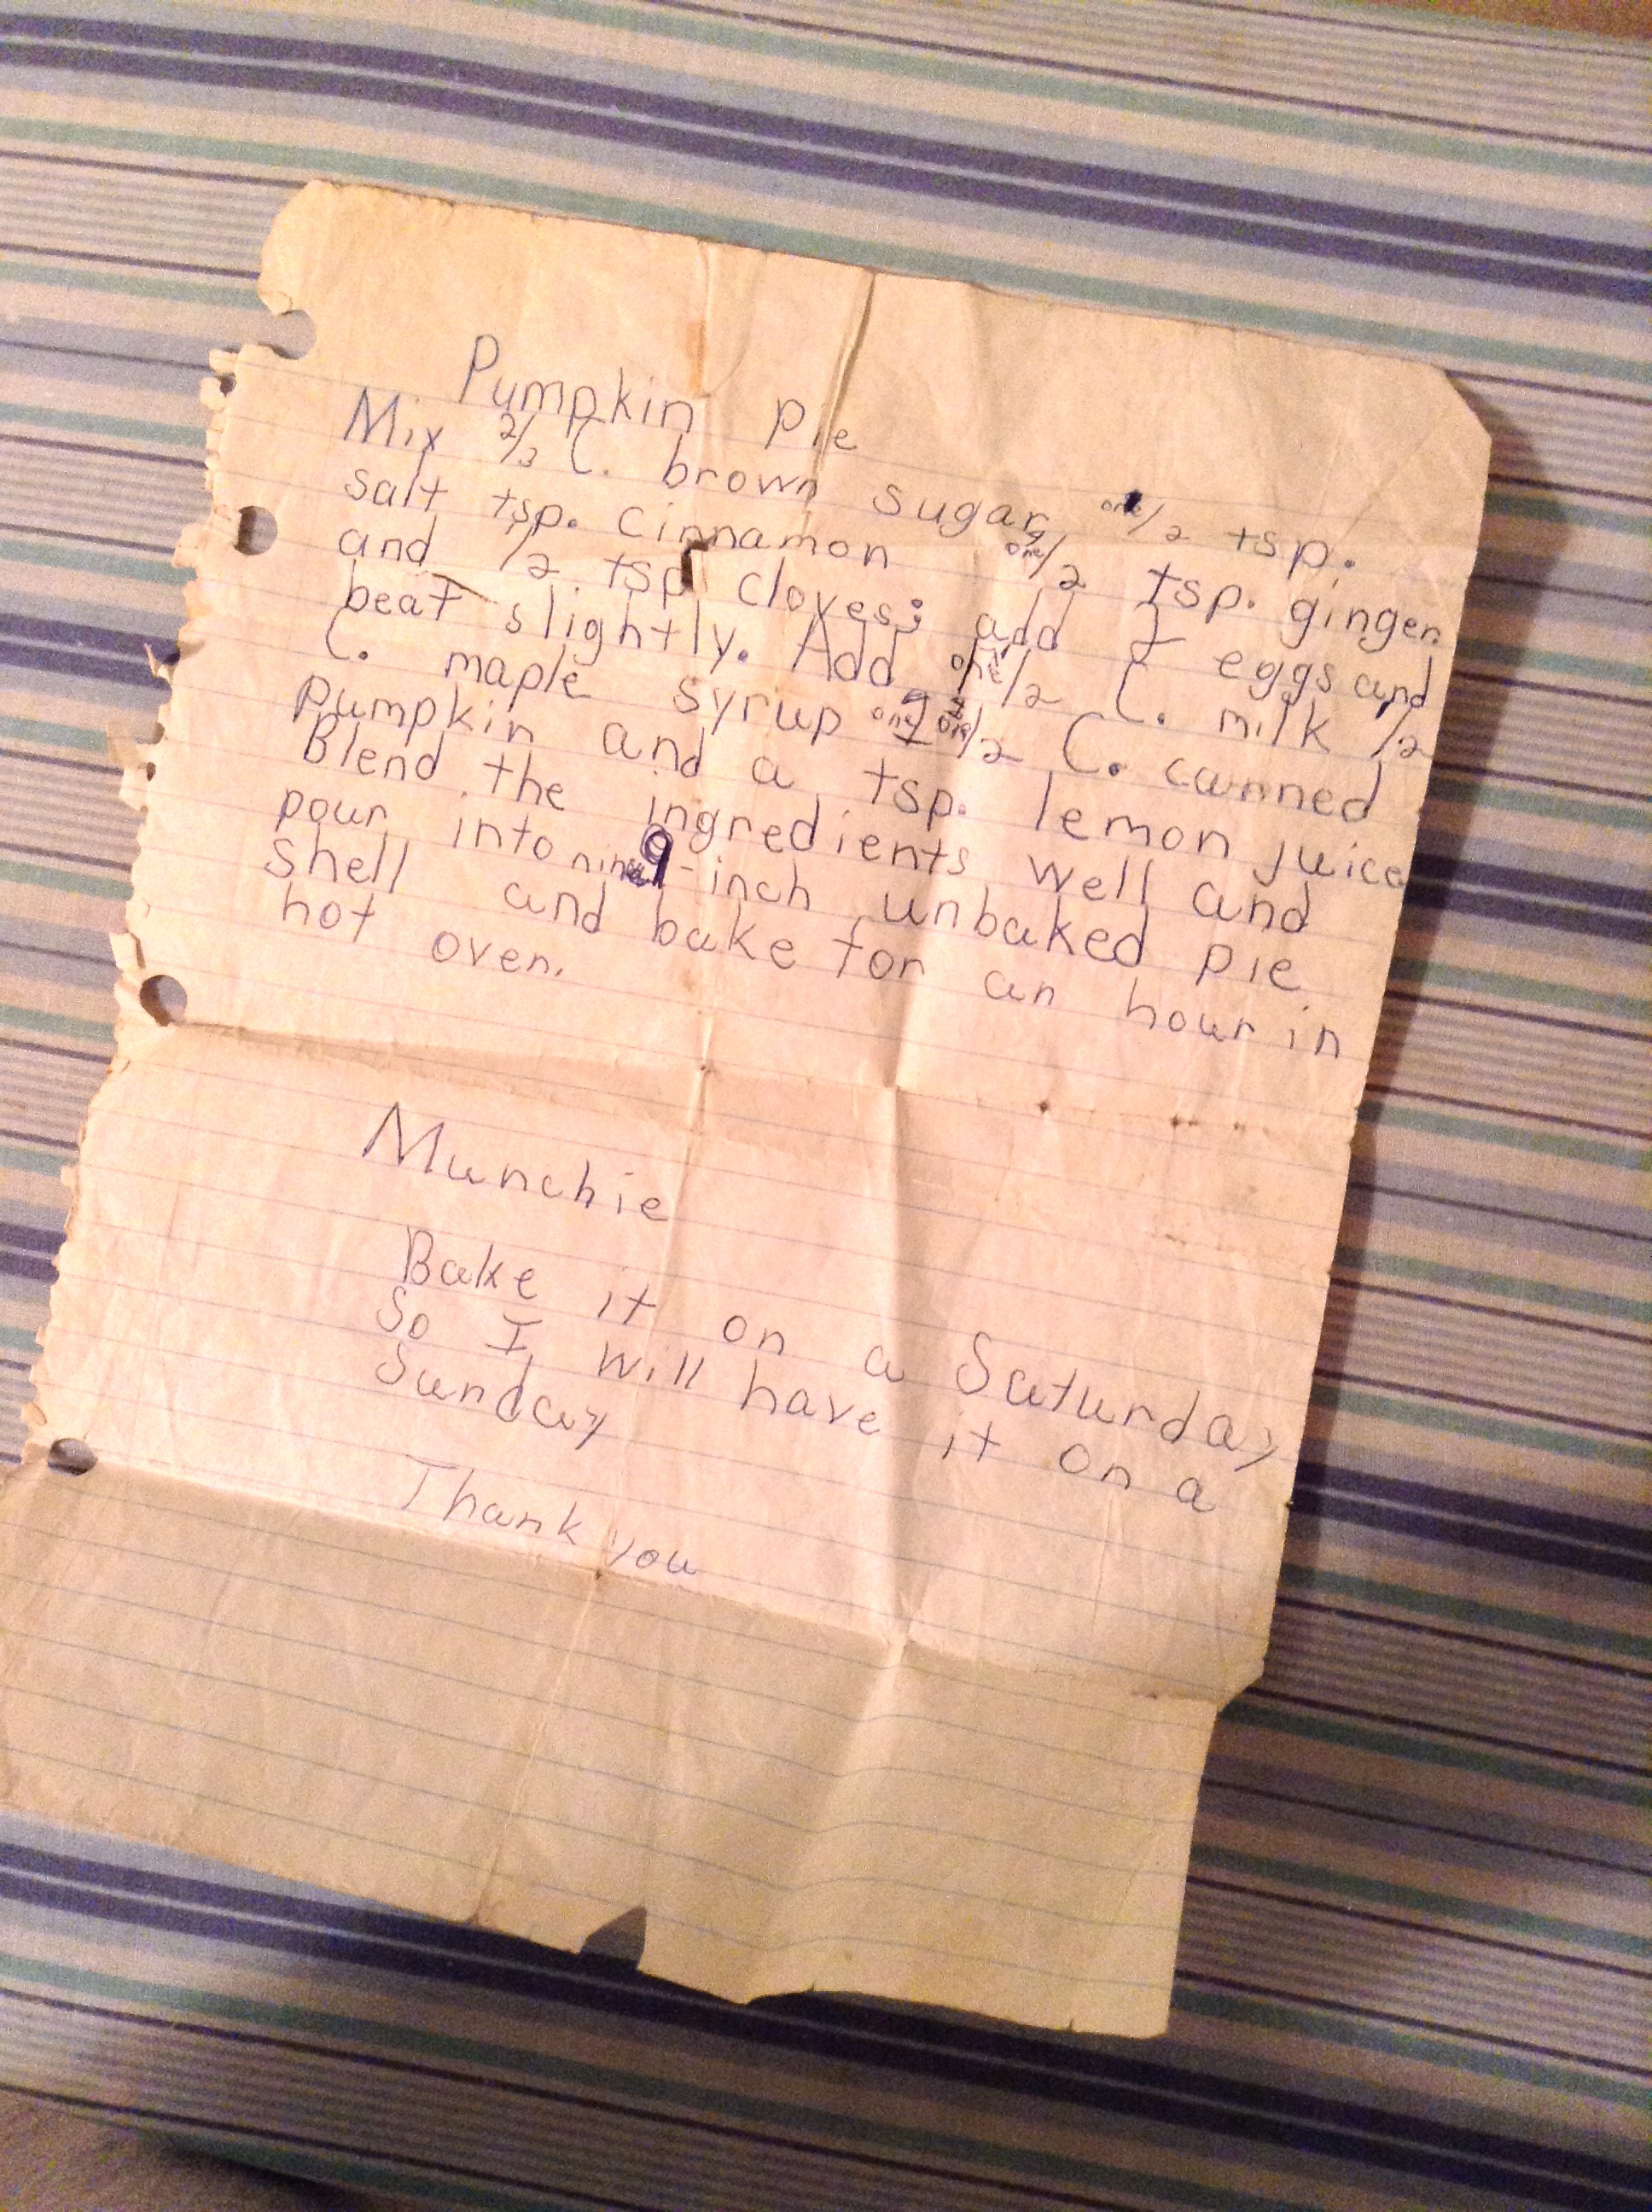 Pumpkin pie
Mix 2/3 C. brown sugar, one/2 tsp.
salt tsp. cinnamon one/2 tsp. ginger
and 1/2 tsp cloves; add 2 eggs and
beat slightly. Add one/2 C. milk 1/2
C. maple syrup one 1 one/2 C. canned
pumpkin and a tsp. lemon juice
Blend the ingredients well and
pour into nine 9-inch unbaked pie
shell and bake for an hour in
hot oven.
Munchie
Bake it on a Saturday
So I will have it on a
Sunday
Thank you